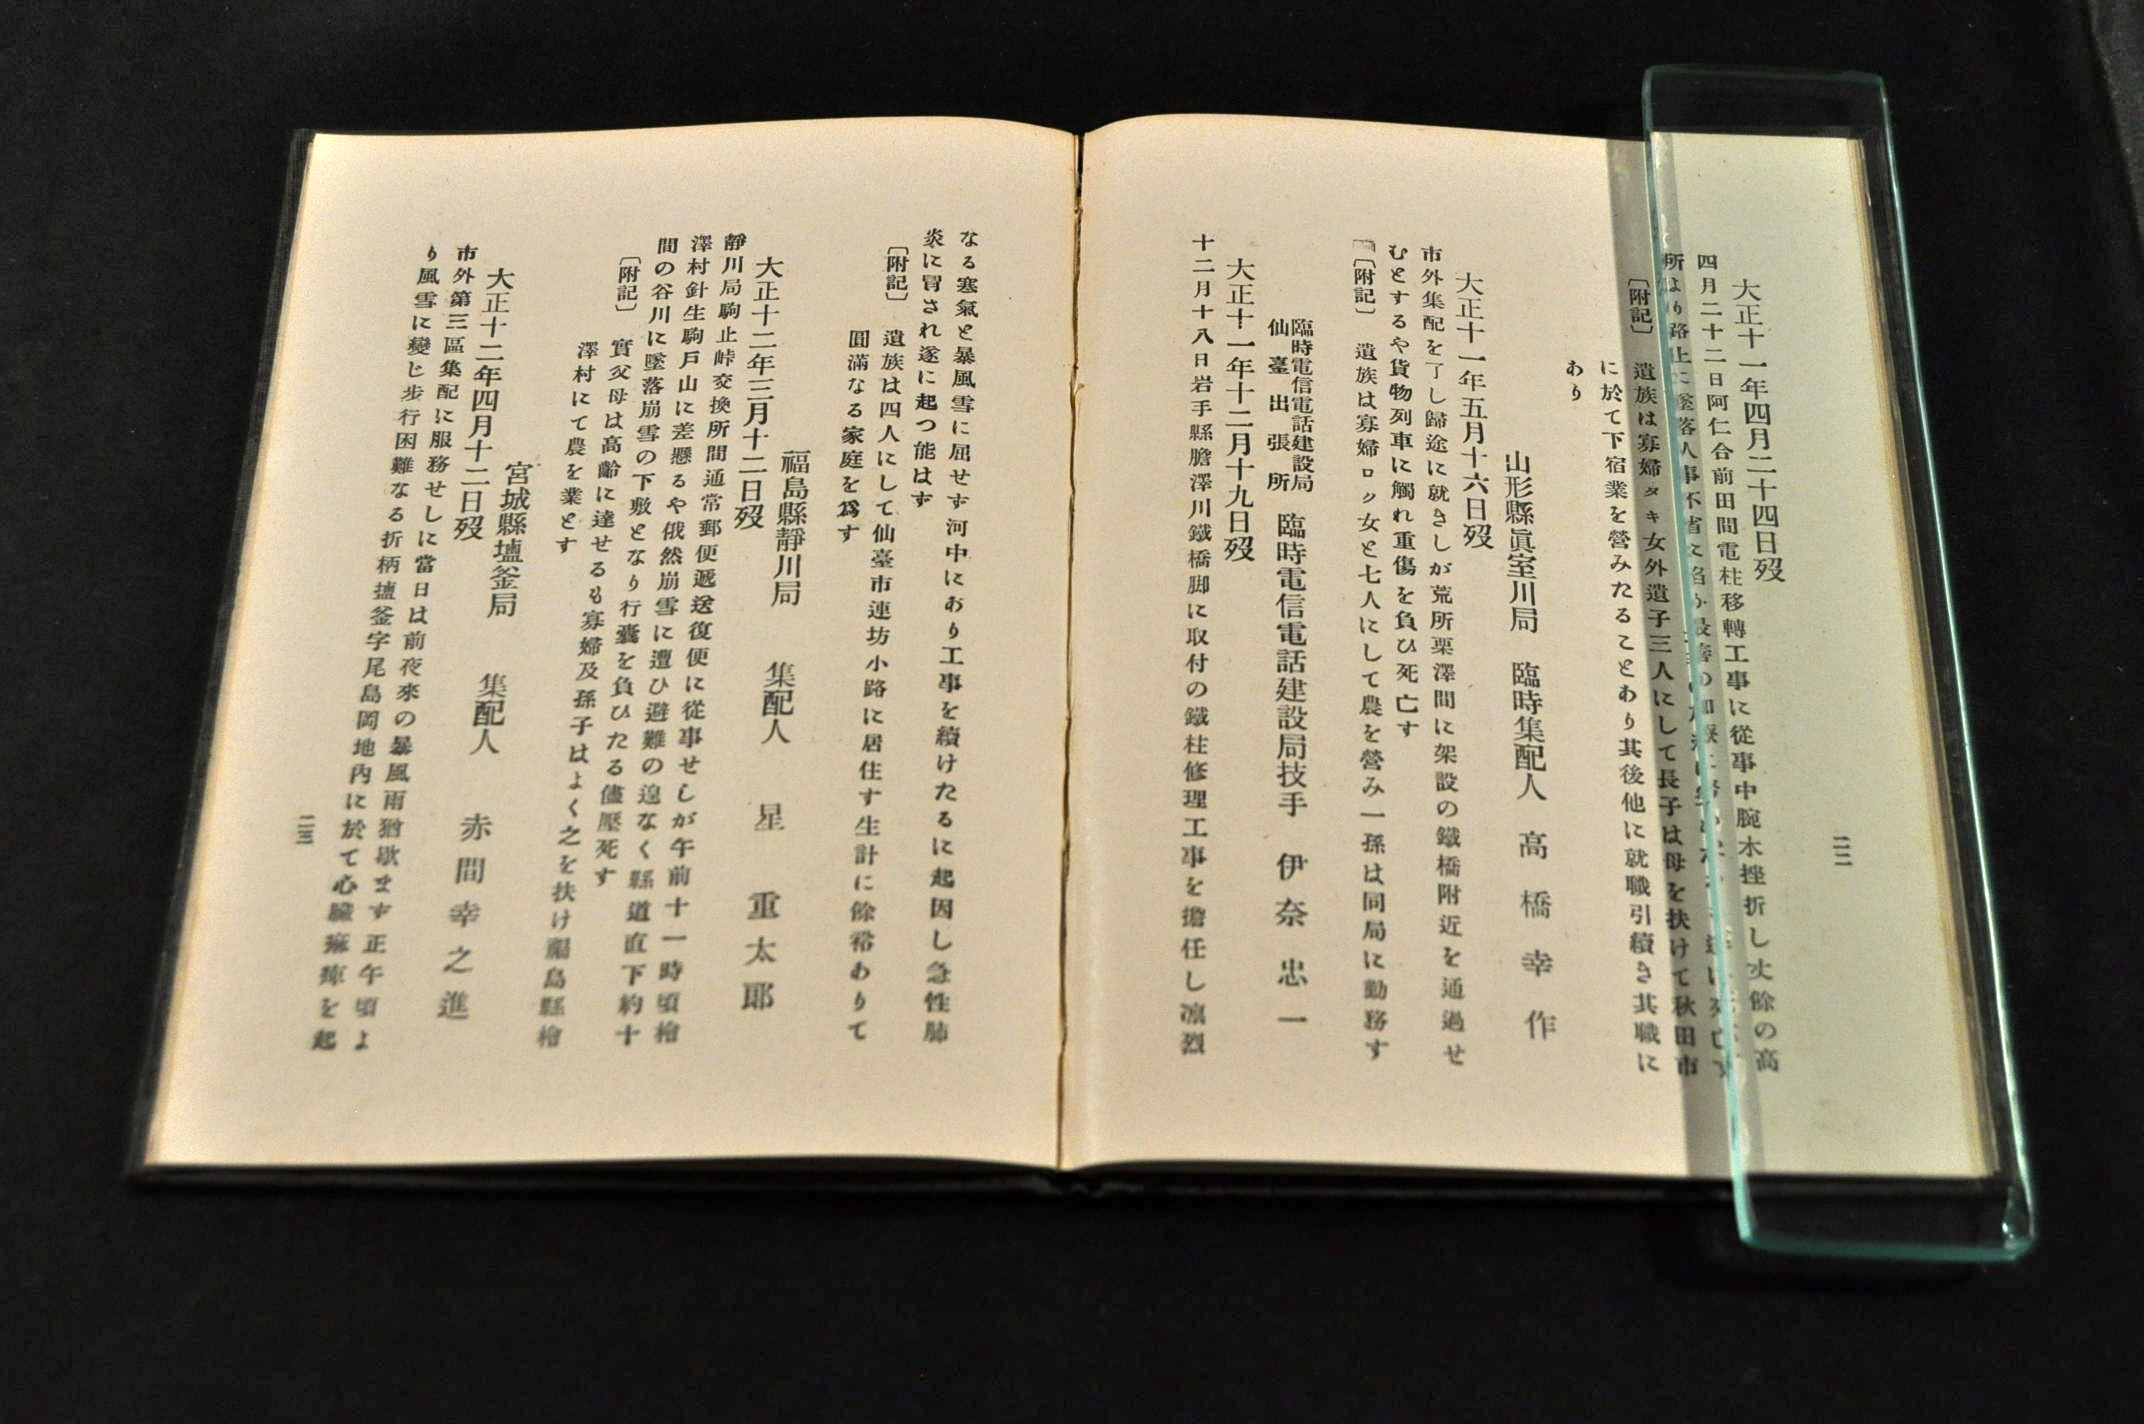 大正十一年四月二十四日歿
四月二十二日阿仁合前田間電柱移轉工事に從事中腕木挫折し丈餘の高
所より路上に墜落人事不省に陷
〔附記〕 遺族は寡婦タキ女外遺子三人にして長子は母を扶けて秋田市
に於て下宿業を營みたることあり其後他に就職引續き其職に
あり
山形縣眞室川局 臨時集配人 高橋幸作
大正十一年五月十六日歿
市外集配を了し歸途に就きしが荒所栗澤間に架設の鐵橋附近を通過せ
むとするや貨物列車に觸れ重傷を負ひ死亡す
〔附記〕 遺族は寡婦ロク女と七人にして農を營み一孫は同局に勤務す
臨時電信電話建設局
仙臺出張所 臨時電信電話建設局技手 伊奈忠一
大正十一年十二月十九日歿
十二月十八日岩手縣膽澤川鐵橋脚に取付の鐵柱修理工事を擔任し凛烈
二二
なる寒氣と暴風雪に屈せず河中にあり工事を續けたるに起因し急性肺
炎に冒され遂に起つ能はず
〔附記〕 遺族は四人にして仙臺市連坊小路に居住す生計に餘裕ありて
圓滿なる家庭を爲す
福島縣靜川局 集配人 星重太郎
大正十二年三月十二日歿
靜川局駒止峠交換所間通常郵便遞送復便に從事せしが午前十一時頃檜
澤村針生駒戸山に差懸るや俄然崩雪に遭ひ避難の遑なく縣道直下約十
間の谷川に墜落崩雪の下敷となり行囊を負ひたる儘壓死す
〔附記〕 實父母は高齡に達せるも寡婦及孫子はよく之を扶け福島縣檜
澤村にて農を業とす
宮城縣塩釜局 集配人 赤間幸之進
大正十二年四月十二日歿
市外第三區集配に服務せしに當日は前夜來の暴風雨猶歇まず正午頃よ
り風雪に變じ步行困難なる折柄塩釜字尾島岡地內に於て心臟痲痺を起
二三